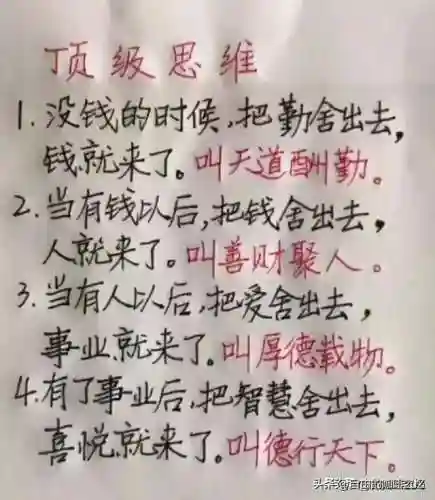 顶级思维
1.没钱的时候,把勤舍出去,
钱就来了。叫天道酬勤。
2.当有钱以后,把钱舍出去,
人就来了。叫善财聚人。
3.当有人以后,把爱舍出去,
事业就来了。叫厚德载物。
4.有了事业后,把智慧舍出去,
喜悦就来了。叫德行天下。